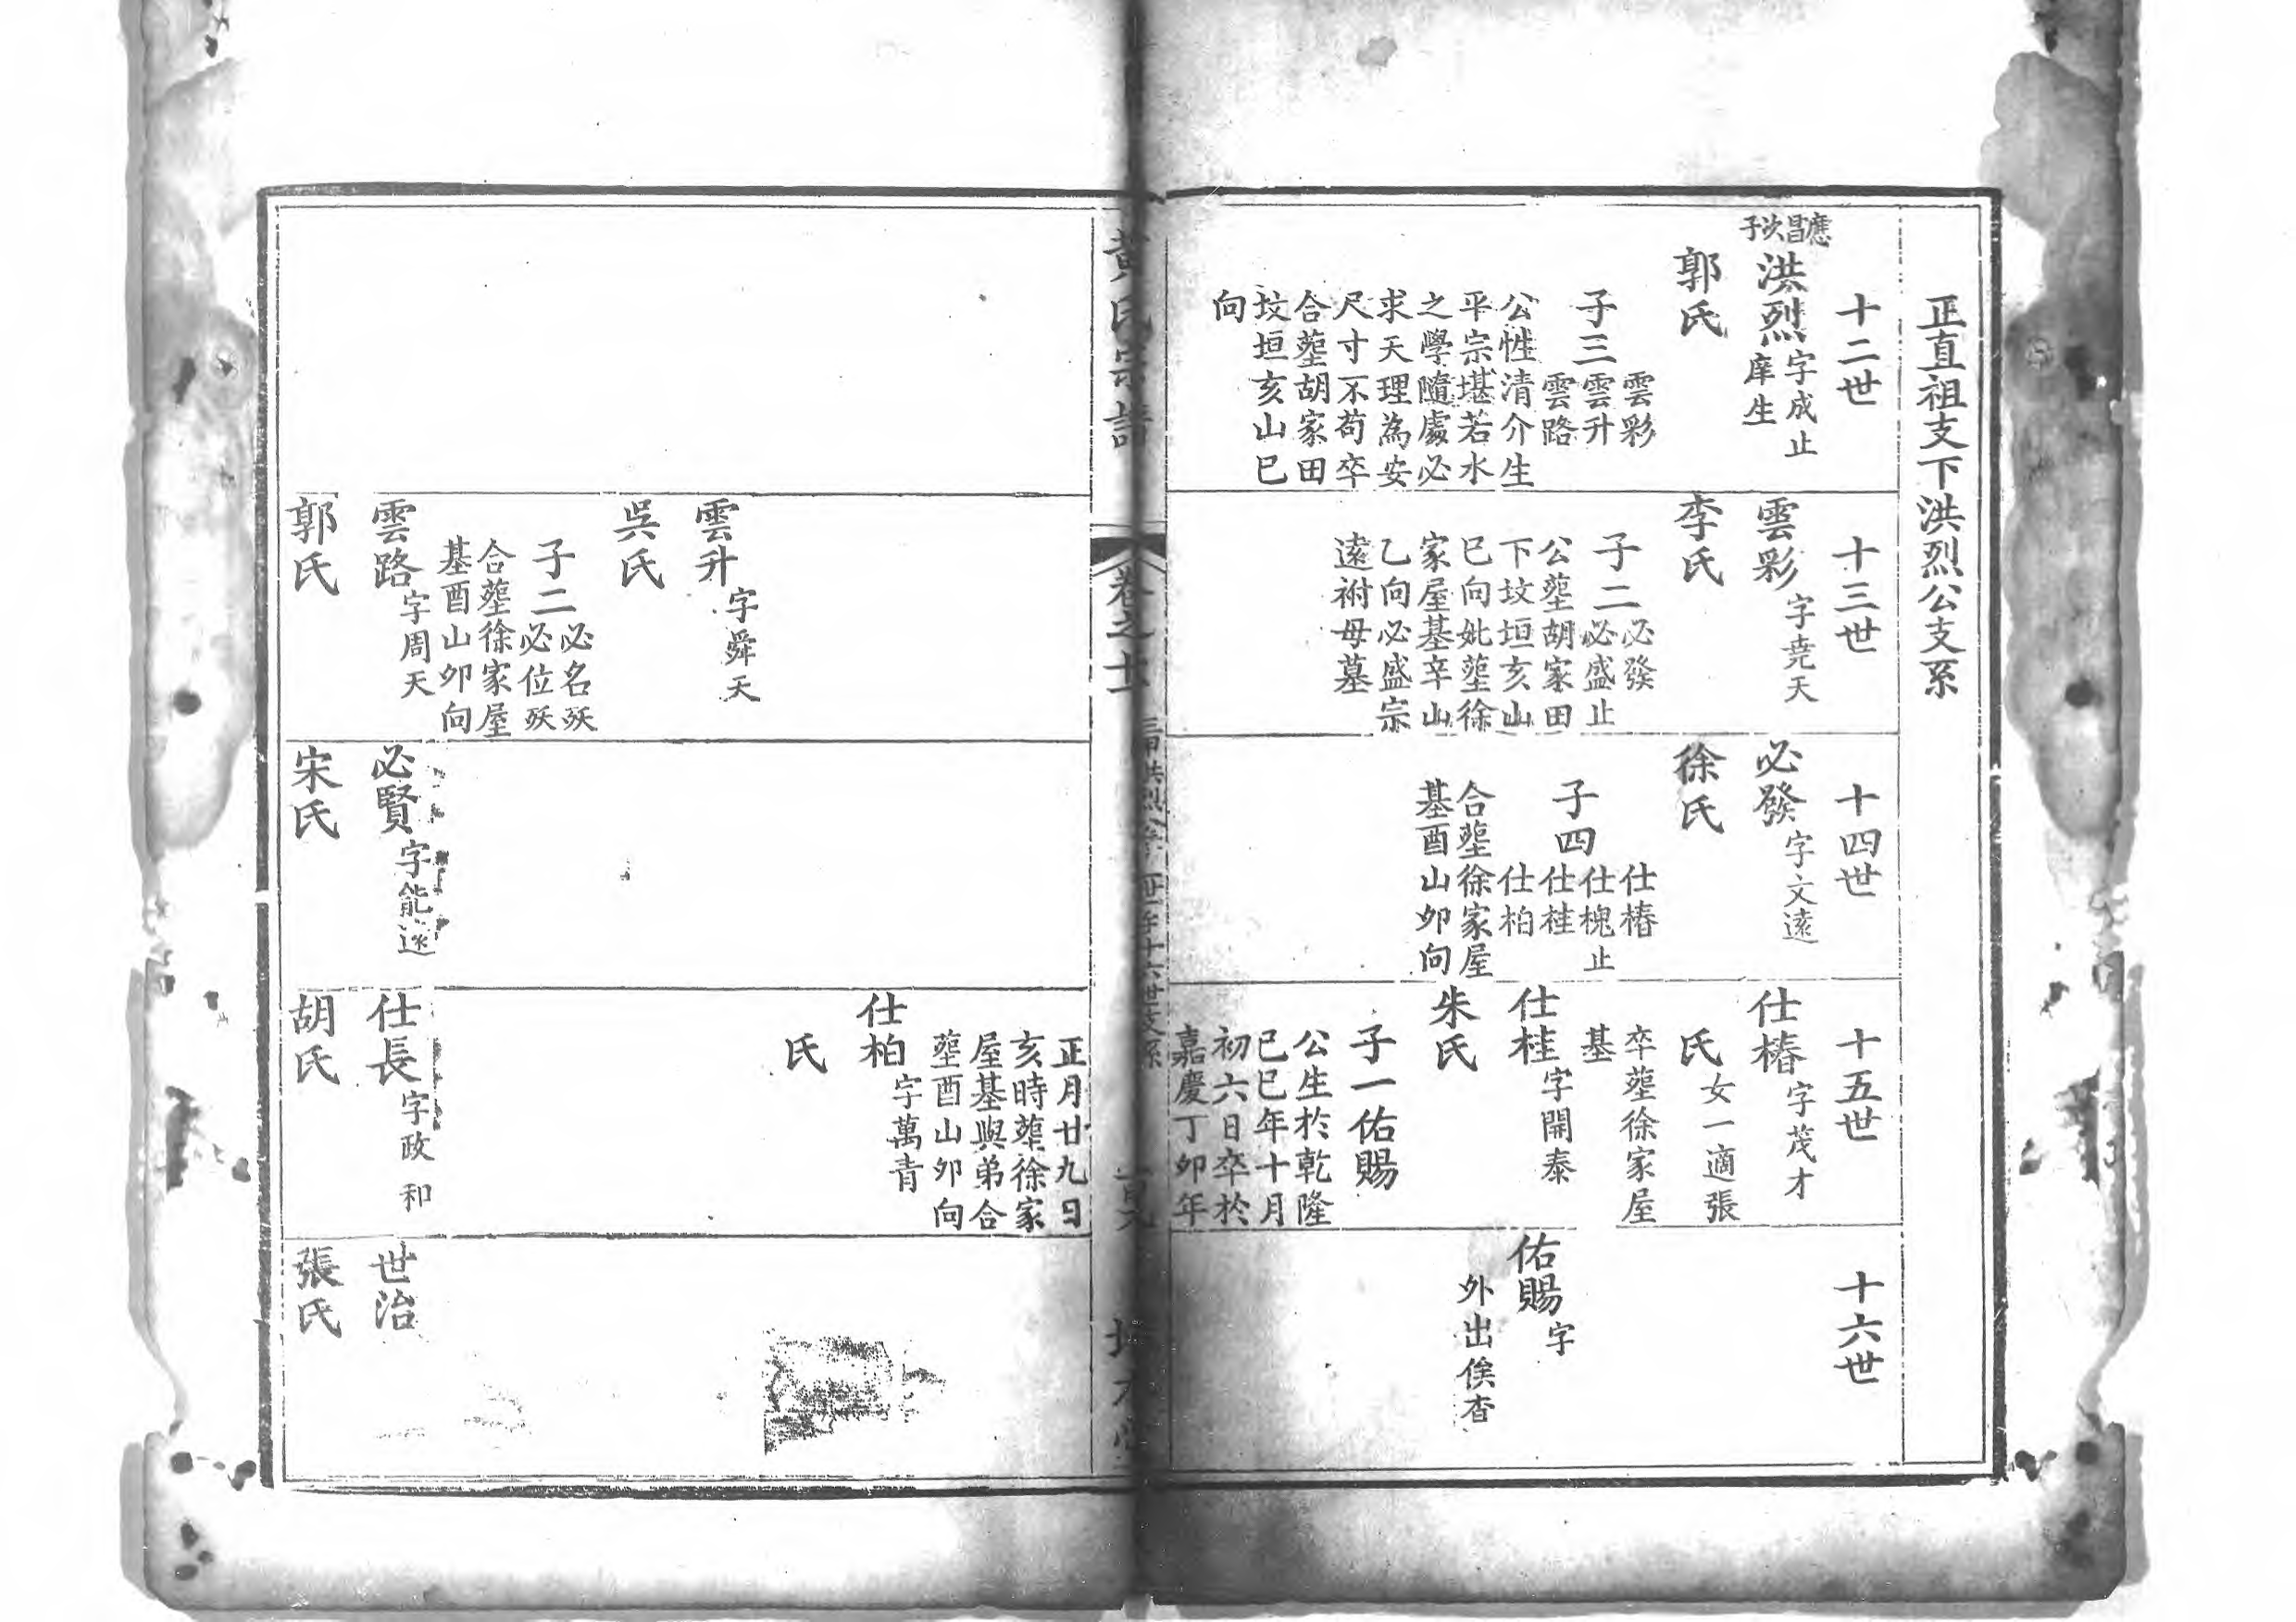 正直祖支下洪烈公支系
十二世
應昌次子
洪烈字成止庠生
郭氏
子三雲彩雲升雲路
公性清介生
平宗堪若水
之學隨處必
求天理為安
尺寸不苟卒
合塟胡家田
坟垣亥山巳
向
十三世
雲彩字堯天
李氏
子二必發必盛止
公塟胡家田
下坟垣亥山
巳向妣塟徐
家屋基辛山
乙向必盛宗
遠祔母墓
十四世
必發字文遠
徐氏
子四仕椿仕槐止仕桂仕柏
合塟徐家屋
基酉山卯向
十五世
仕椿字茂才
氏女一適張
卒塟徐家屋
基
仕桂字開泰
朱氏
子一佑賜
公生於乾隆
己巳年十月
初六日卒於
嘉慶丁卯年
十六世
佑賜字
外出俟查
黃氏宗譜
卷之十一
雲升字舜天
吳氏
子二必名殀必位殀
合塟徐家屋
基酉山卯向
雲路字周天
郭氏
必賢字能遠
宋氏
正月廿九日
亥時塟徐家
屋基與弟合
塟酉山卯向
仕柏字萬青
氏
仕長字政和
胡氏
世治
張氏